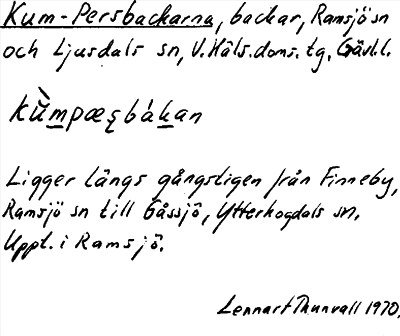 Kum-Persbackarna, backar, Ramsjö sn
och Ljusdals sn, V. Häls. doms. tg, Gävl.l.
kùmpæʂbákan
Ligger längs gångstigen från Finneby,
Ramsjö sn till Gåssjö, Ytterhogdals sn.
Uppt. i Ramsjö.
Lennart Thunvall 1970.